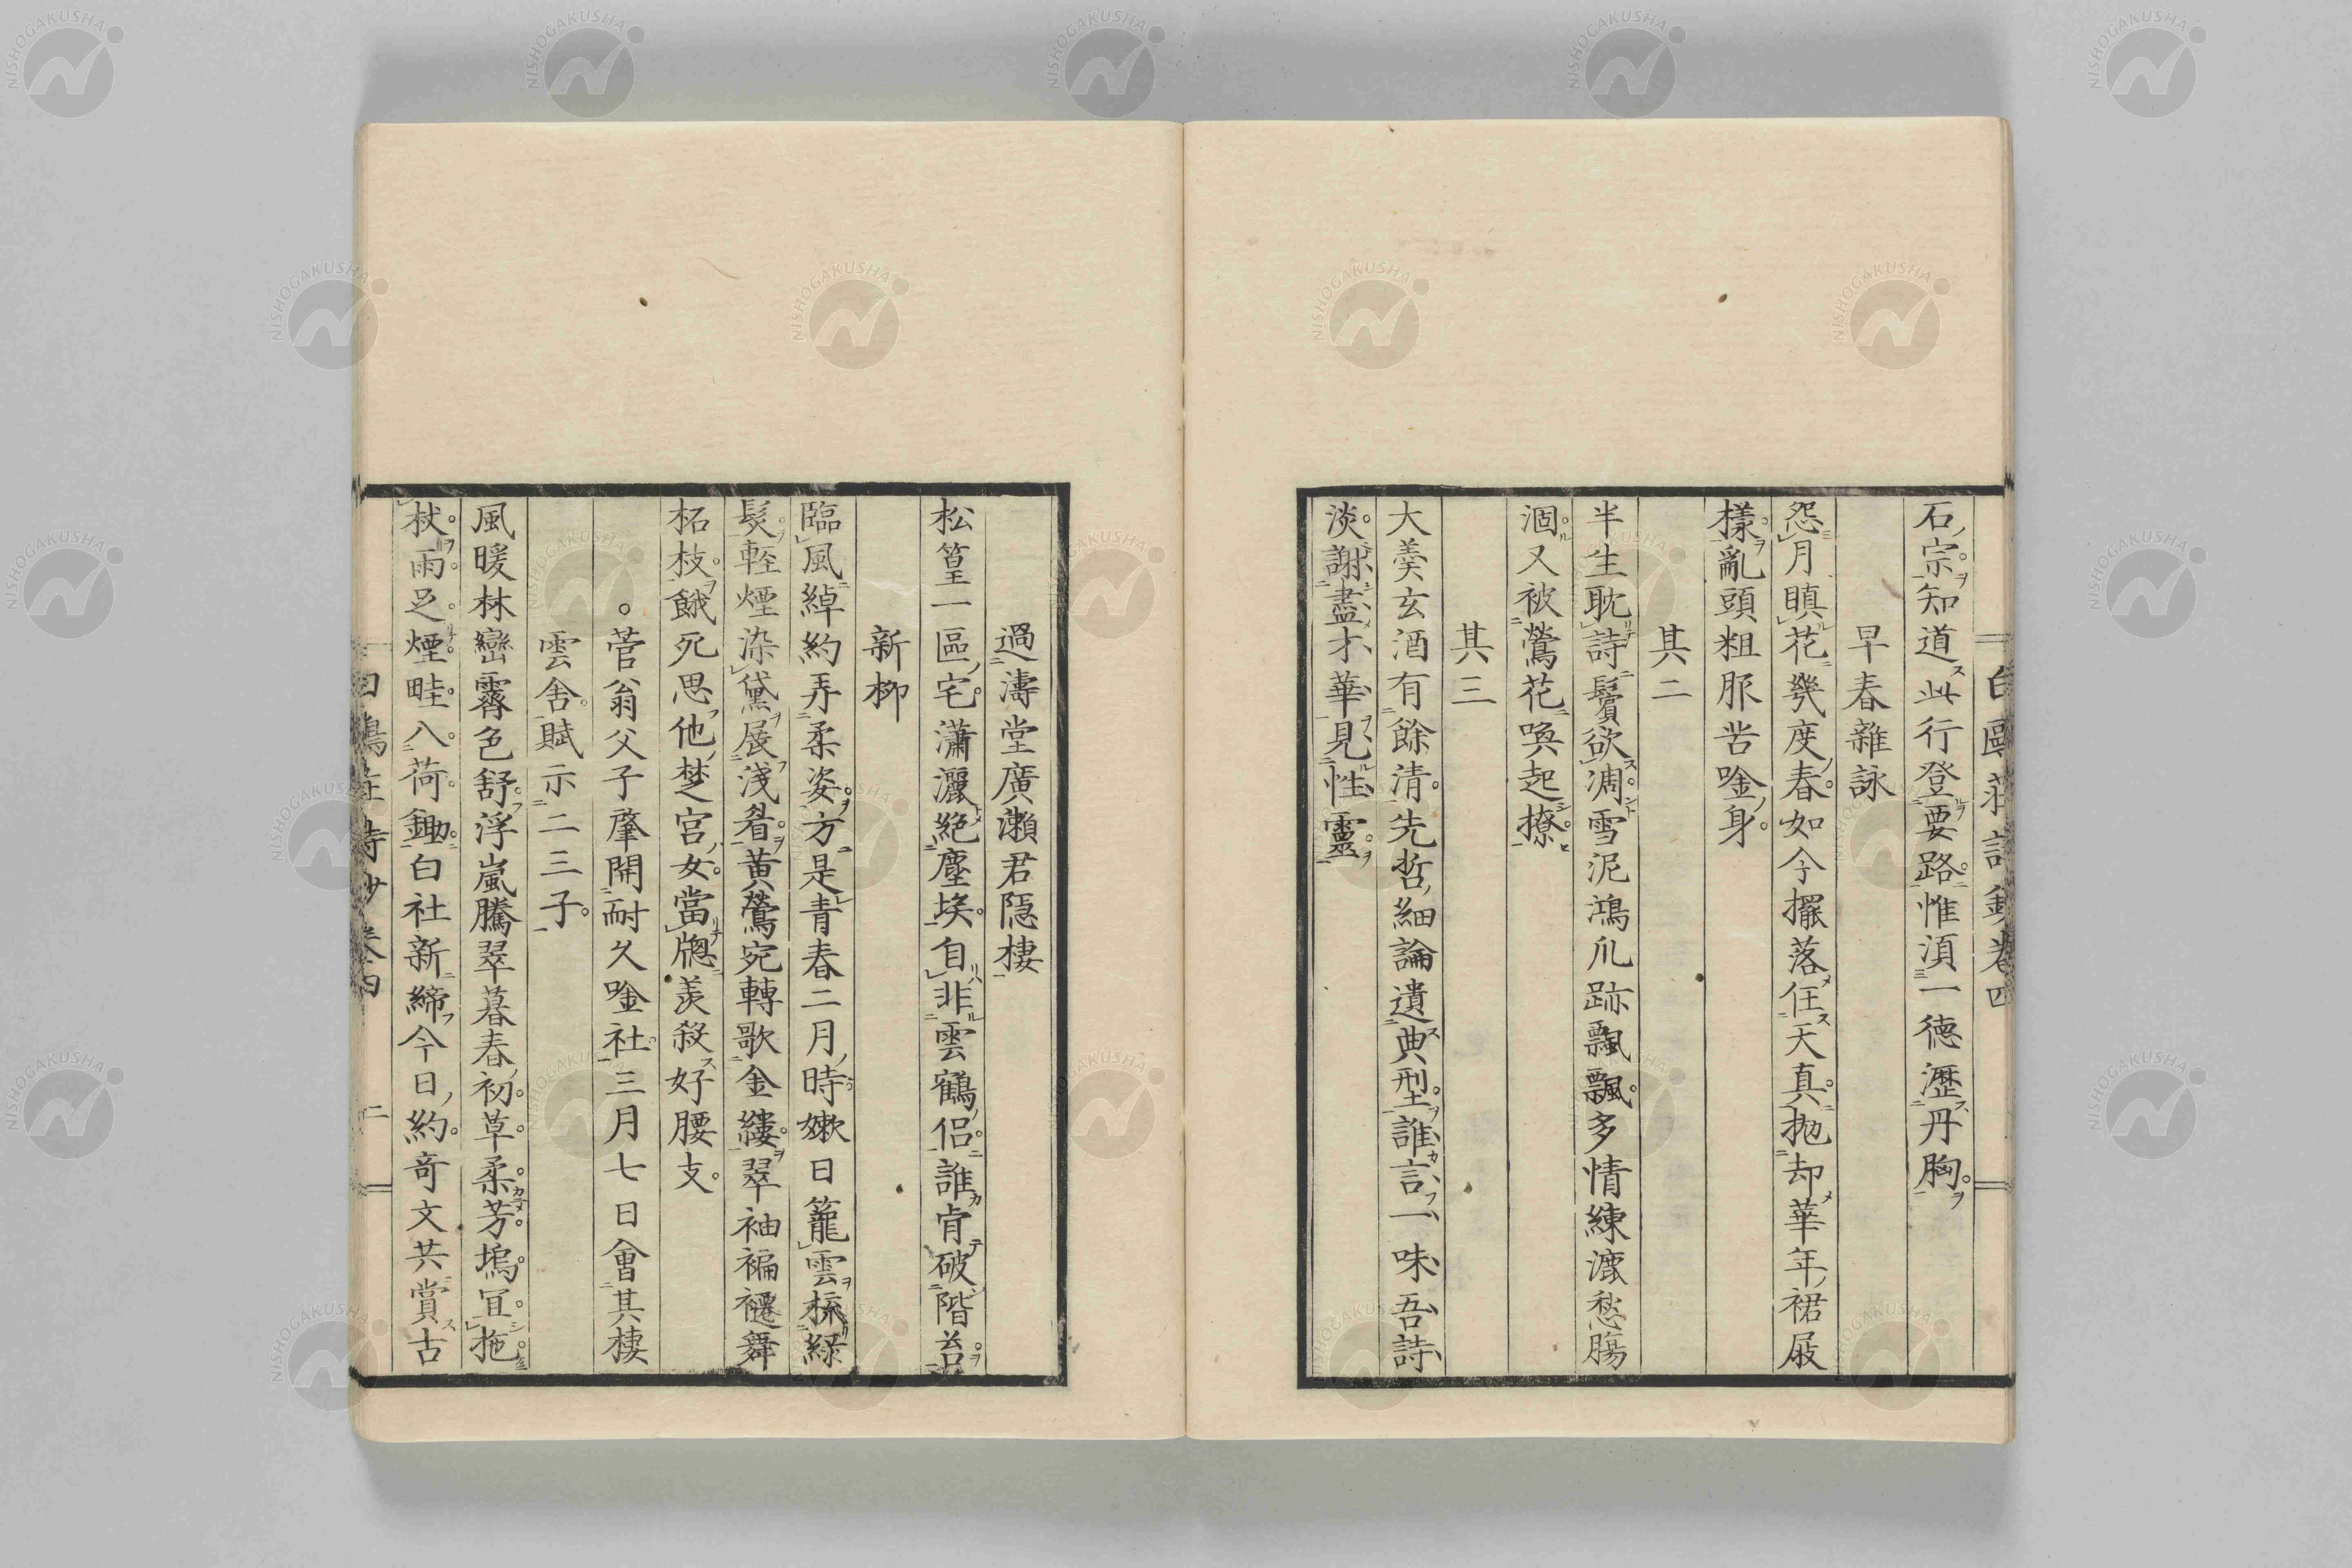 白鷗莊詩鈔卷四
石宗知道此行登要路惟湏一德瀝丹胸
早春雜詠
怨月瞋花幾度春如今擺落任天真拋却華年裙屐
樣亂頭粗服苦唫身
其二
半生耽詩鬢欲凋雪泥鴻爪跡飄飄多情練漉愁腸
涸又被鶯花喚起撩
其三
大羹玄酒有餘清先哲細論遺典型誰言一味吾詩
淡謝盡才華見性靈
過濤堂廣瀨君隱棲
松篁一區宅瀟灑絕塵埃自非雲鶴侶誰肯破階苔
新柳
臨風綽約弄柔姿方是青春二月時嫩日籠雲梳綠
髮輕煙染黛展淺眉黃鶯宛轉歌金縷翠袖褊褼舞
柘枝餓死思他楚宮女當牕羨殺好腰支
菅翁父子肇開耐久唫社三月七日會其棲
雲舍賦示二三子
風暖林巒霽色舒浮嵐騰翠暮春初草柔芳塢宜拖
杖雨足煙畦八荷鋤白社新締今日約奇文共賞古
二